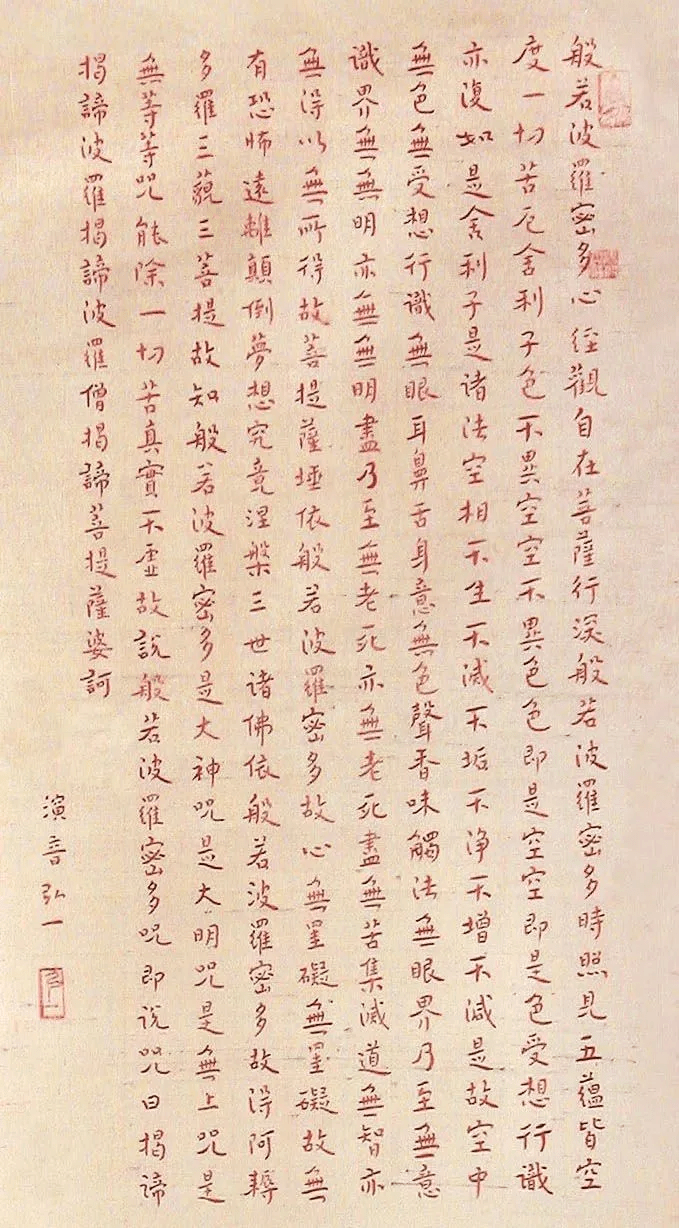 般若波羅密多心经觀自在菩薩行深般若波羅密多時照見五蘊皆空
度一切苦厄舍利子色不異空空不異色色即是空空即是色受想行識
亦復如是舍利子是诸法空相不生不滅不垢不净不增不減是故空中
無色無受想行識無眼耳鼻舌身意無色聲香味觸法無眼界乃至無意
識界無無明亦無無明盡乃至無老死亦無老死盡無苦集滅道無智亦
無得以無所得故菩提薩埵依般若波羅密多故心無罣礙無罣礙故無
有恐怖遠離顛倒夢想究竟涅槃三世诸佛依般若波羅密多故得阿耨
多羅三藐三菩提故知般若波羅密多是大神咒是大明咒是無上咒是
無等等咒能除一切苦真實不虚故説般若波羅密多咒即说咒曰揭諦
揭諦波羅揭諦波羅僧揭諦菩提薩婆訶
演音弘一